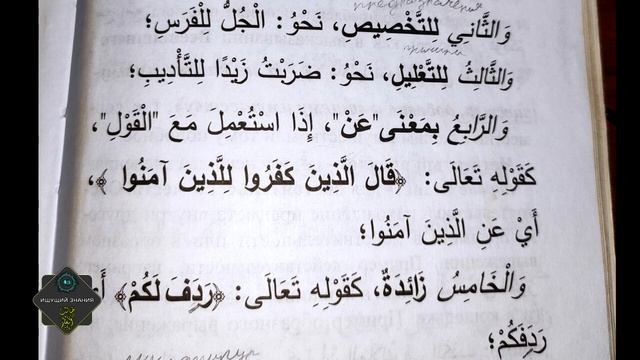 وَالثَّانِي لِلتَّخْصِيصِ، نَحْوُ: الْجُلُّ لِلْفَرَسِ؛
وَالثَّالِثُ لِلتَّعْلِيلِ، نَحْوُ: ضَرَبْتُ زَيْدًا لِلتَّأْدِيبِ؛
وَالرَّابِعُ بِمَعْنَى "عَنْ"، إِذَا اسْتُعْمِلَ مَعَ "الْقَوْلِ"،
كَقَوْلِهِ تَعَالَى: ﴿قَالَ الَّذِينَ كَفَرُوا لِلَّذِينَ آمَنُوا﴾،
أَيْ عَنِ الَّذِينَ آمَنُوا؛
وَالْخَامِسُ زَائِدَةٌ، كَقَوْلِهِ تَعَالَى: ﴿رَدِفَ لَكُمْ﴾ أَيْ
رَدِفَكُمْ؛
ИЩУЩИЙ ЗНАНИЯ